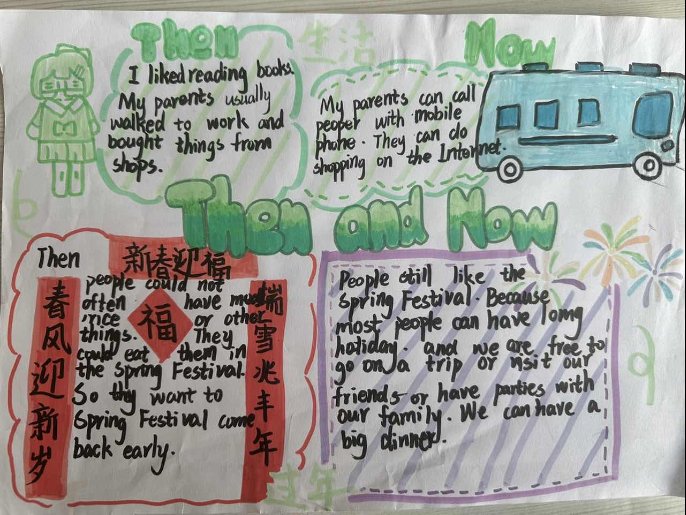 Then
生活
Now
I liked reading books.
My parents usually
walked to work and
bought things from
shops.
My parents can call
peoper with mobile
phone. They can do
shopping on the Internet.
Then and Now
新春迎福
春风迎新岁
福
瑞雪兆丰年
Then
people could not
often have meat
rice or other
things. They
could eat them in
the Spring Festival.
So thy want to
Spring Festival come
back early.
People still like the
Spring Festival. Because
most people can have long
holiday. and we are free to
go on a trip or visit our
friends or have parties with
our family. We can have a
big dinner.
过年